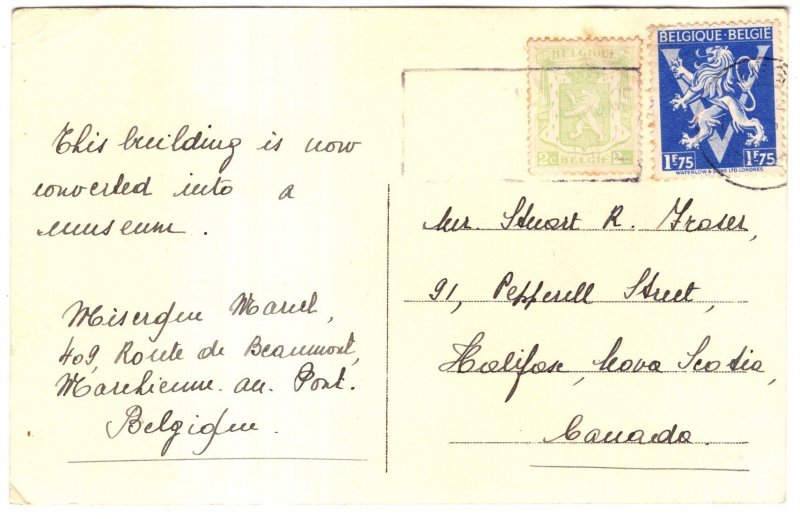 This building is now
converted into a
museum.
Miserque Marcel,
409 Route de Beaumont,
Marchienne. au. Pont.
Belgique.
BELGIQUE
2c BELGIE 2c
BELGIQUE-BELGIË
1F75 1F75
WATERLOW & SONS LTD. LONDRES
Mr. Stuart R. Fraser,
91, Pepperell Street,
Halifax, Nova Scotia,
Canada.